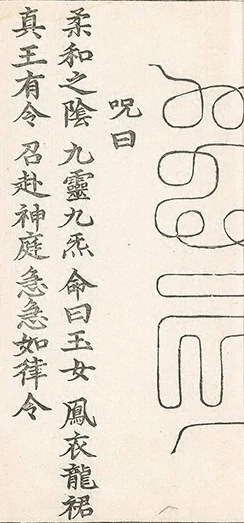 咒曰
柔和之陰 九靈九炁 命曰玉女 鳳衣龍裙
真王有令 召赴神庭 急急如律令